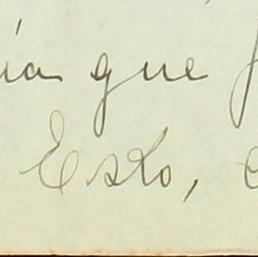 ía que
Esto,